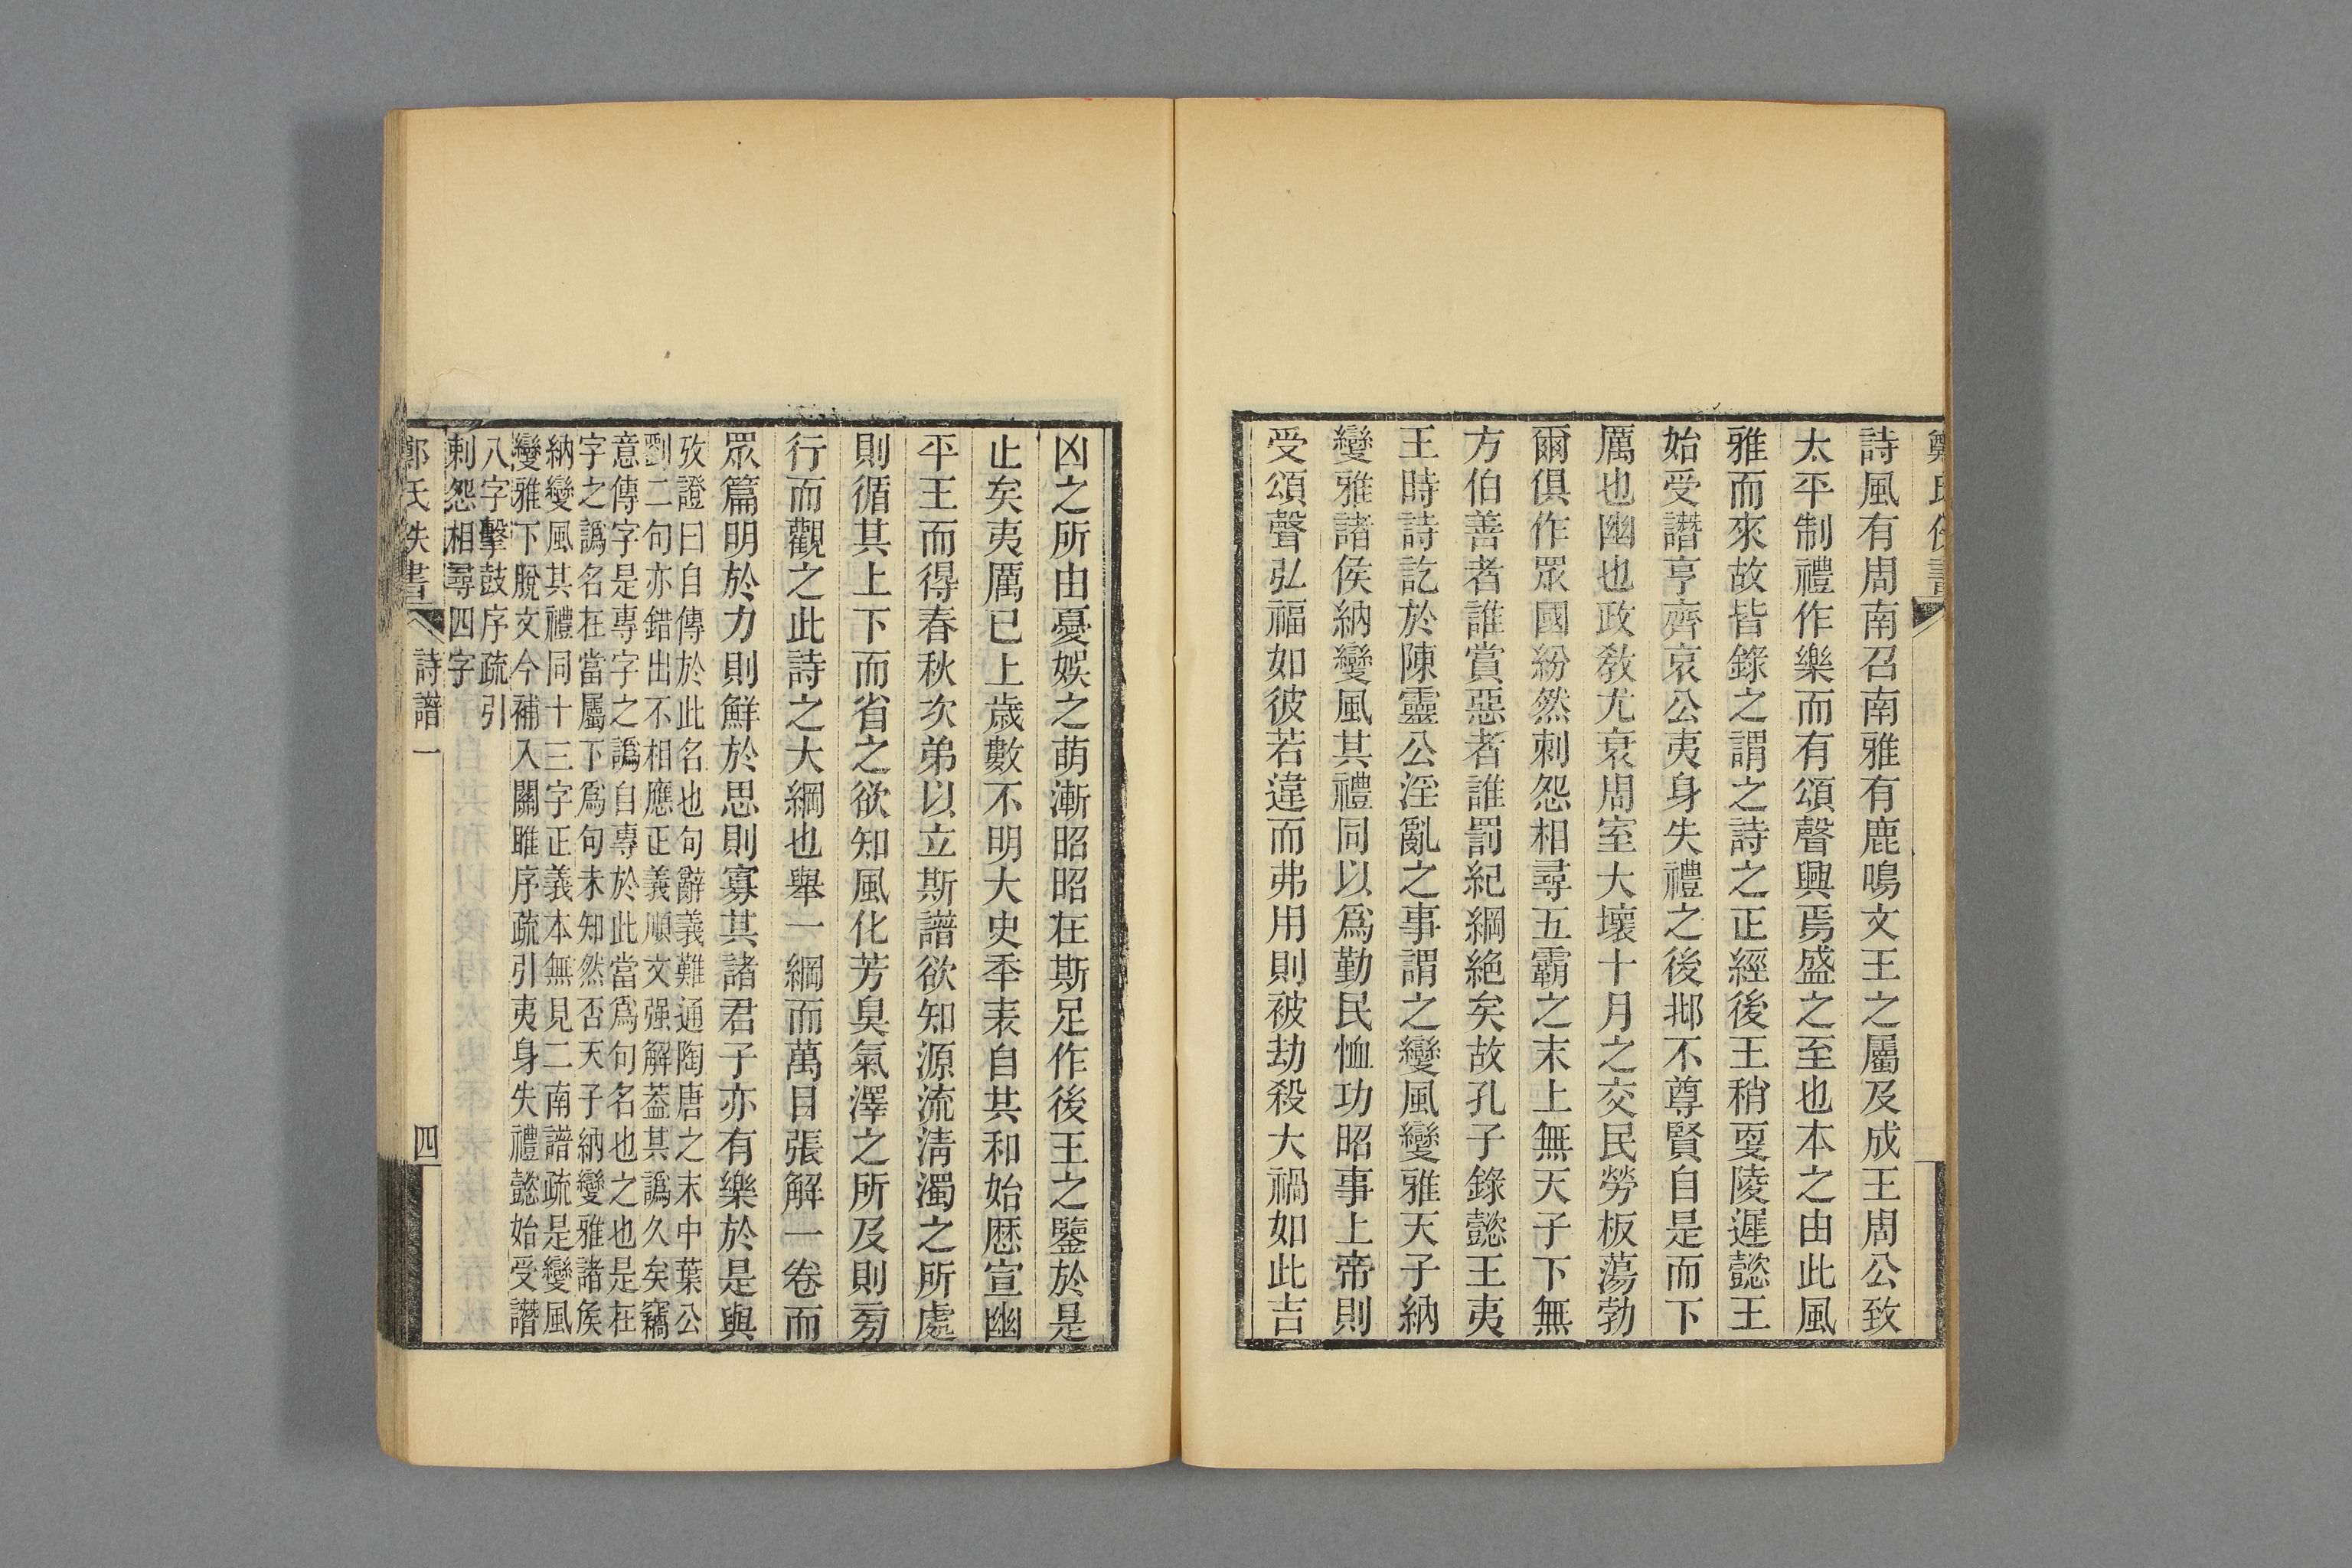 鄭氏佚書
詩風有周南召南雅有鹿鳴文王之屬及成王周公致
太平制禮作樂而有頌聲興焉盛之至也本之由此風
雅而來故皆錄之謂之詩之正經後王稍㪅陵遲懿王
始受譖亨齊哀公夷身失禮之後邶不尊賢自是而下
厲也幽也政敎尤衰周室大壞十月之交民勞板蕩勃
爾俱作眾國紛然刺怨相尋五霸之末上無天子下無
方伯善者誰賞惡者誰罰紀綱絶矣故孔子錄懿王夷
王時詩訖於陳靈公淫亂之事謂之變風變雅天子納
變雅諸侯納變風其禮同以爲勤民恤功昭事上帝則
受頌聲弘福如彼若違而弗用則被劫殺大禍如此吉
凶之所由憂娛之萌漸昭昭在斯足作後王之鑒於是
止矣夷厲已上歲數不明大史秊表自共和始歷宣幽
平王而得春秋次弟以立斯譜欲知源流淸濁之所處
則循其上下而省之欲知風化芳臭氣澤之所及則㫄
行而觀之此詩之大綱也舉一綱而萬目張解一卷而
眾篇明於力則鮮於思則寡其諸君子亦有樂於是與
攷證曰自傳於此名也句辭義難通陶唐之末中葉公
劉二句亦錯出不相應正義順文强解葢其譌久矣竊
意傳字是專字之譌自專於此當爲句名也之也是在
字之譌名在當屬下爲句未知然否天子納變雅諸矦
納變風其禮同十三字正義本無見二南譜疏是變風
變雅下脫文今補入關雎序疏引夷身失禮懿始受譖
八字擊鼓序疏引
刺怨相尋四字
鄭氏佚書
詩譜一
四